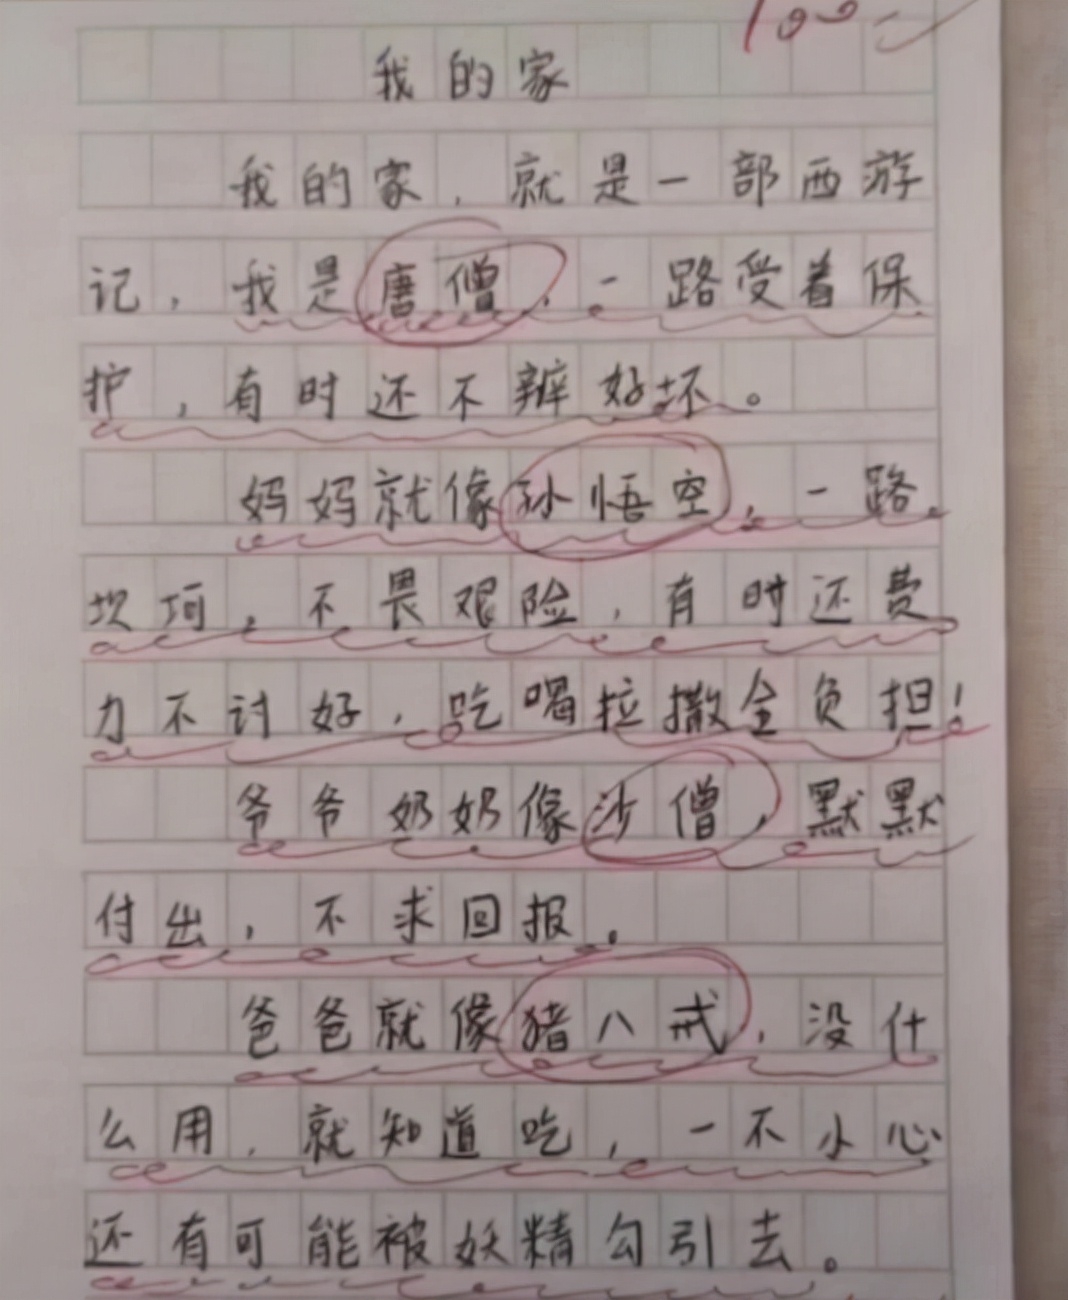 100
我的家
我的家，就是一部西游
记，我是唐僧，一路受着保
护，有时还不辨好坏。
妈妈就像孙悟空，一路
坎坷，不畏艰险，有时还费
力不讨好，吃喝拉撒全负担！
爷爷奶奶像沙僧，默默
付出，不求回报。
爸爸就像猪八戒，没什
么用，就知道吃，一不小心
还有可能被妖精勾引去。